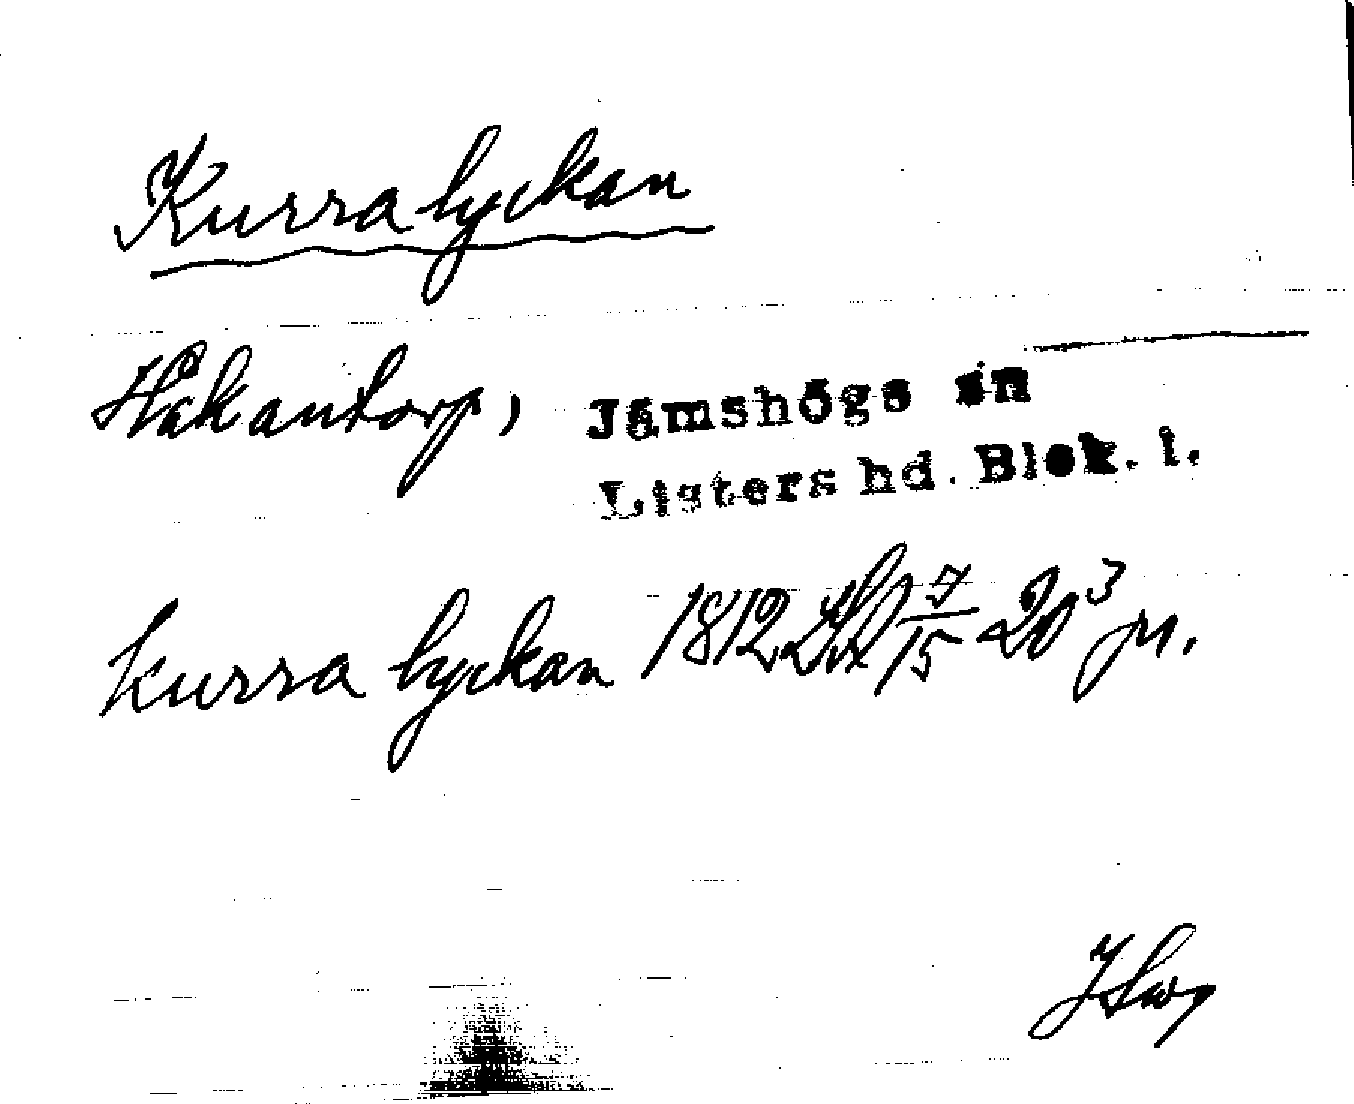 Kurralyckan
Håkantorp, Jämshögs sn
Listers hd. Blek. l.
kurra lyckan 1812 7/15 20³ ju.